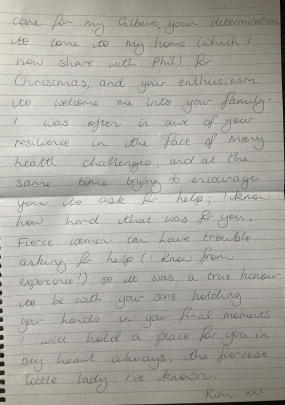 care for my Gilbert, your determination
to come to my home (which I
now share with Phil) for
Christmas, and your enthusiasm
to welcome me into your family.
I was often in awe of your
resilience in the face of many
health challenges, and at the
same time trying to encourage
you to ask for help; I know
how hard that was for you.
Fierce women can have trouble
asking for help (I know from
experience!), so it was a true honour
to be with your sons holding
your hands in your final moments
I will hold a place for you in
my heart always, the fiercest
little lady I've known.
xxx